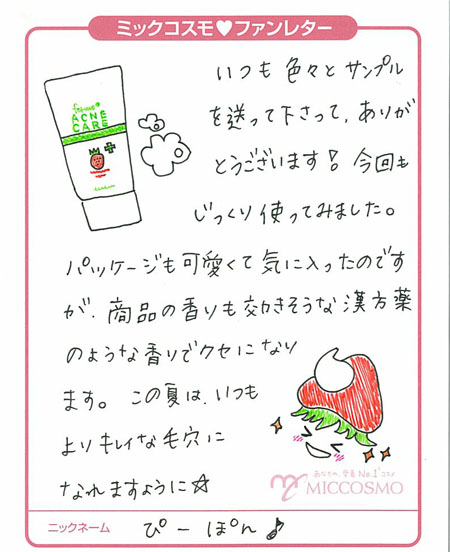 ミックコスモ♥ファンレター
いつも色々とサンプル
を送って下さって、ありが
とうございます! 今回も
じっくり使ってみました。
パッケージも可愛くて気に入ったのです
が、商品の香りも効きそうな漢方薬
のような香りでクセになり
ます。この夏は、いつも
よりキレイな毛穴に
なれますように☆
ACNE
CARE
あなたの、愛着No.1コスメ
MICCOSMO
ニックネーム
ぴーぽん♪